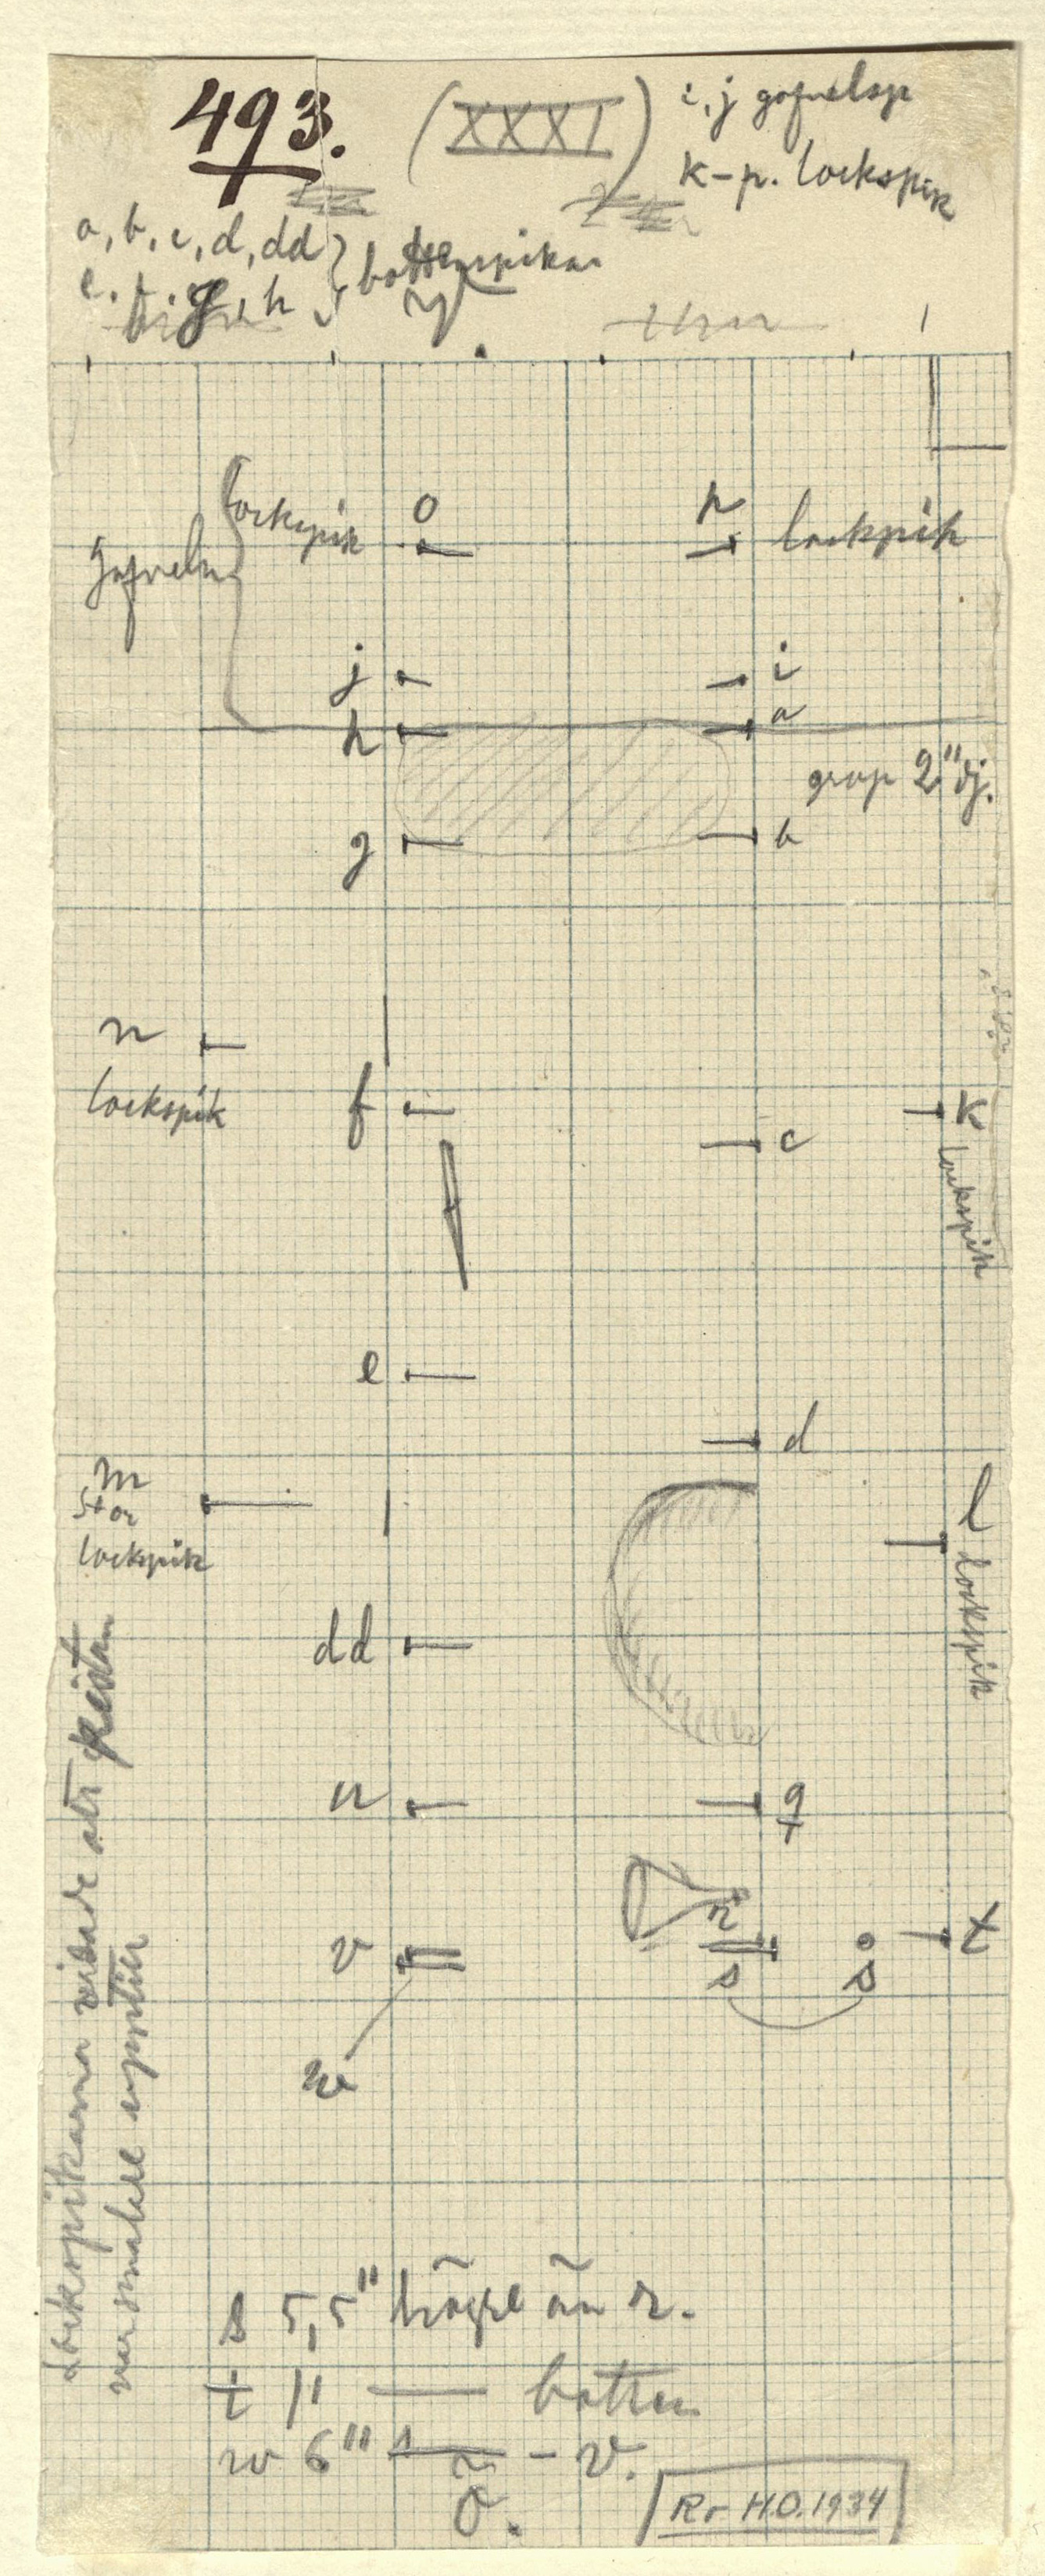 493. (XXXI) i, j gafvelsp
k-p. lockspik
a, b, c, d, dd
e, f, g, h } bottenspikar
V
lockspik o p lockpik
gafveln
j i
h a
grop 2" dj.
g b
n
lockspik f c k
lockspik
e
d
m
stor
lockspik l
lockspik
dd
u q
r
v s s t
w
Lockspikarna visade att kistan
var smalare upptill
s 5,5" högre än r.
t 11 — botten
w 6" — v.
Ö.
Rr H.O. 1934